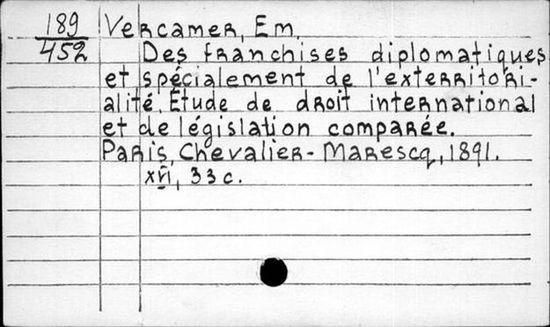 189 Vercamer, Em.
452 Des franchises diplomatiques
et spécialement de l'exterritori-
alité. Étude de droit international
et de législation comparée.
Paris, Chevalier-Marescq, 1891.
XVI, 33 c.